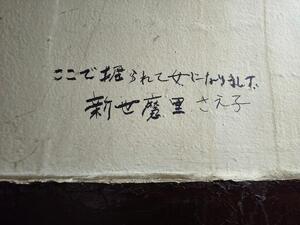 ここで掘られて女になります。
新世磨里さえ子